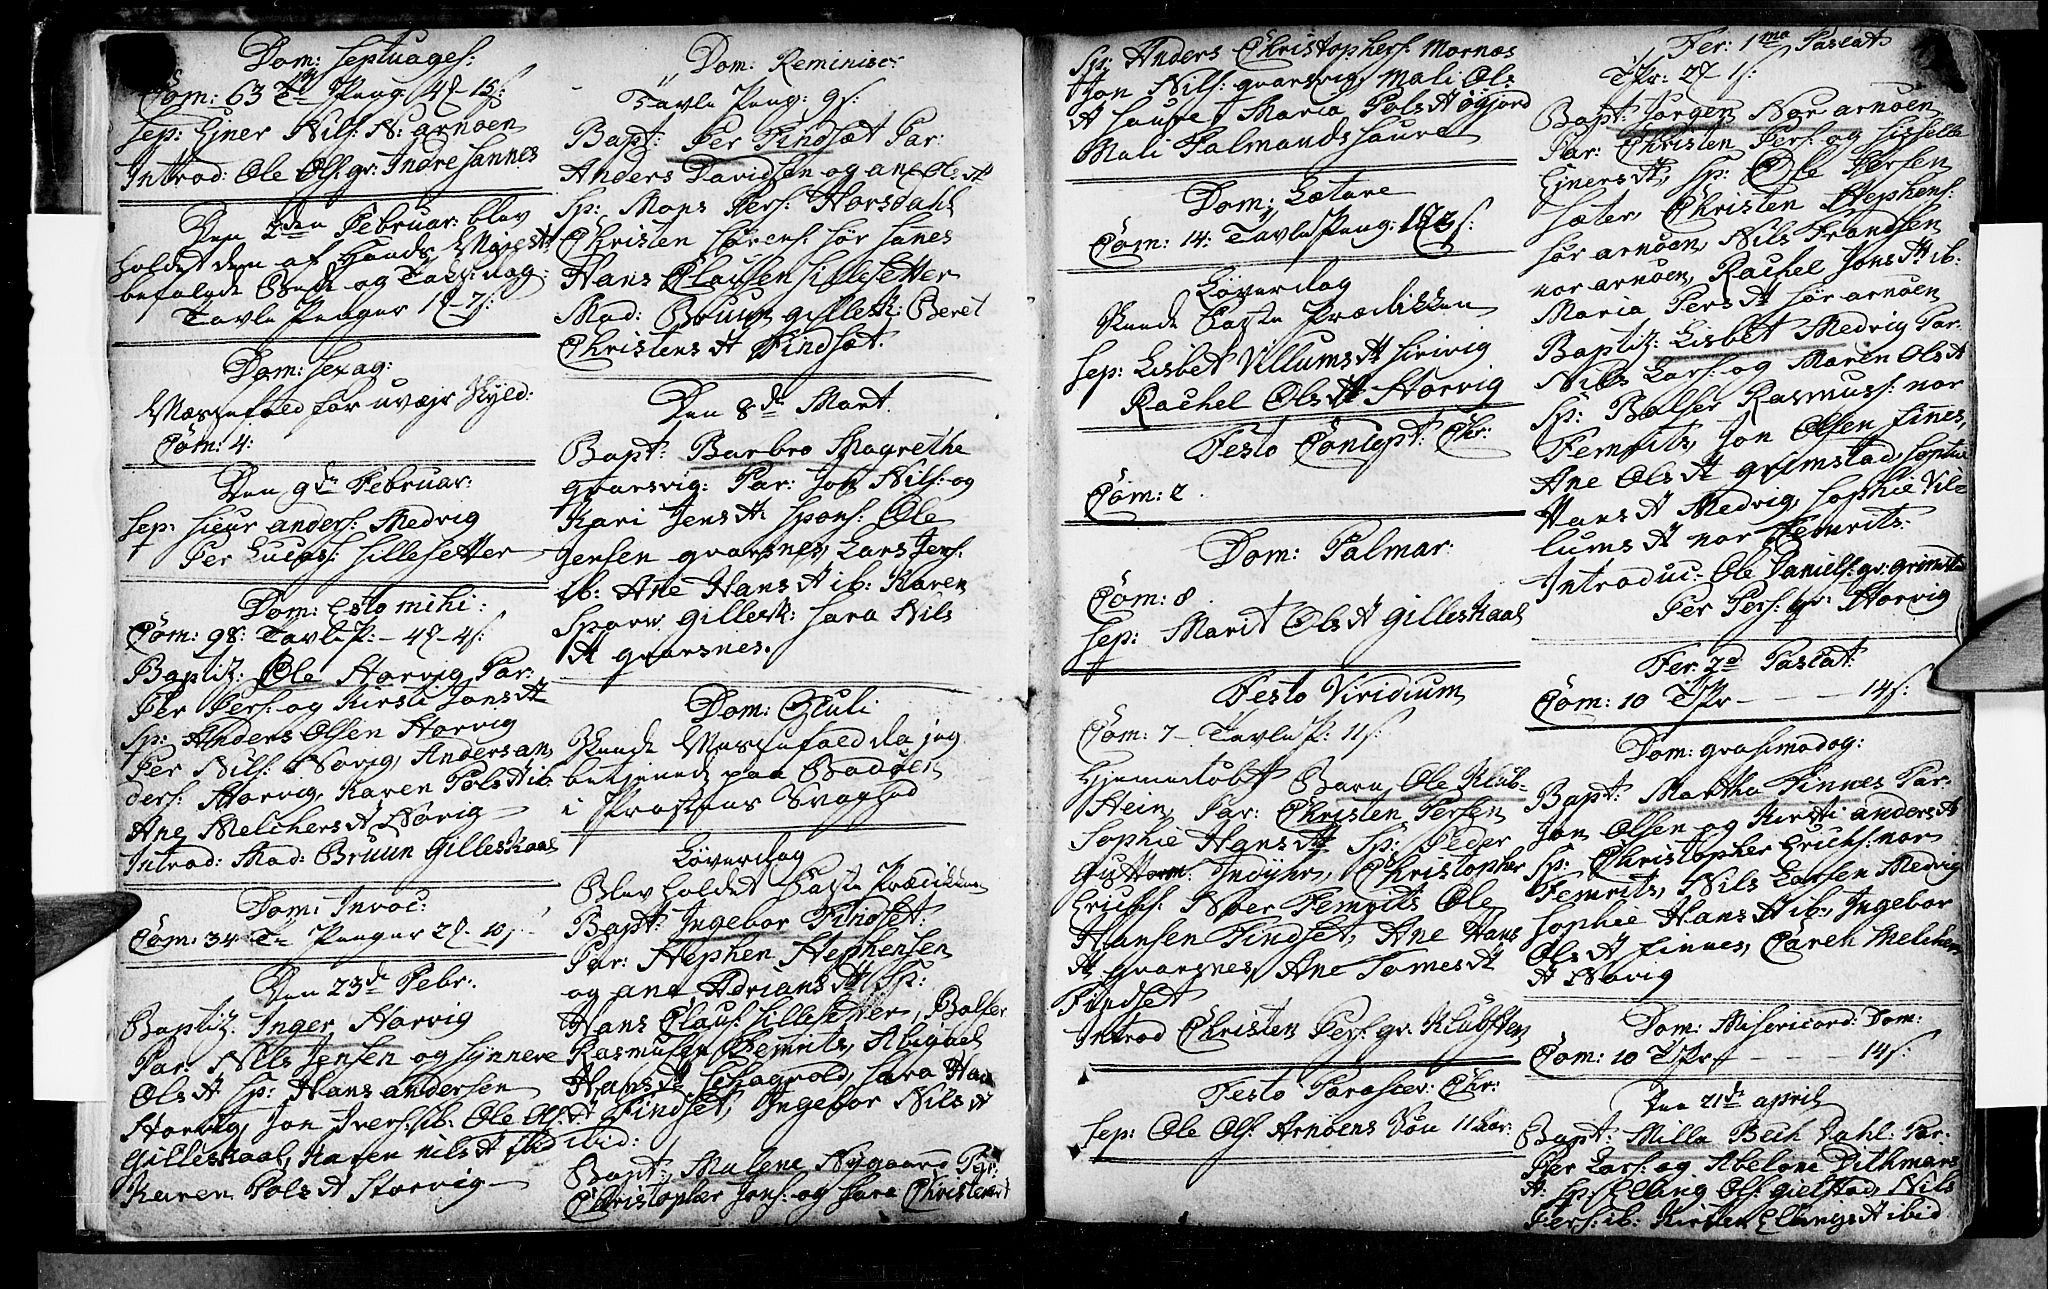 Dom: Septuages:
Com: 63 Tle Peng 4 15 s:
Sep: Ejner Nils: N: arnøen
Introd: Ole Ols: gv: Indre Sannes
Den 2den Februar: blev
holdet den af Hands Majest:
befalede Bede og Takke dag
Tavle Penger 1 - 7 s:
Dom: Sexag:
Messefald for uvejr skyld:
Com: 4:
Den 9de Februar:
Sep: Siur anders: Medvig
Per Lucas: Sillesetter
Dom: Esto mihi:
Com: 98: Tavle P: - 4 - 4 s:
Baptiz: Ole Storvig Par:
Per Pers: og Kirsti Jons D
Sp: Anders Olsen Storvig
Per Nils: Novig, Anders an
ders: Storvig, Karen Pols D ib:
Ane Melchers D Novig
Introd: Mad: Bruun Gilleskaal
Dom: Invoc:
Com: 34 Tle Penger 2 10 s:
Den 23de Febr:
Baptiz: Inger Storvig
Par: Nils Jensen og Synnere
Ols D Sp: Hans andersen
Storvig, Jon Ivers: ib: Ole Ols:
Gilleskaal, Karen nils D ibid
Karen Pols D Storvig
Dom: Reminisc:
Tavle Peng: 9 s:
Bapt: Per Findset Par:
Anders Davidsen og ane Ols D
Sp: Mons Pers: Horsdahl
Christen Sørens: Sør Sanes
Hans Clausen Sillesetter
Mad: Bruun gillesk: Beret
Christens D Findset.
Den 8de Mart.
Bapt: Barbro Magrethe
gvarsvig: Par: Jon Nils: og
Kari Jens D: Spons: Ole
Jensen gvarsnes, Lars Jens:
ib: Ane Hans D ib: Karen
Sparv gillesk: Sara Nils
D gvarsnes.
Dom: Oculi
Skeede Messefald da jeg
betjenede paa Bodøen
i Provstens Svaghed
Løverdag
Blev holdet Faste Prædikken
Bapt: Ingebor Findset:
Par: Stephen Stephensen
og ane Adrians D Sp:
Hans Claus: Sillesetter, Balser
Rasmusen Femrits, Abigael
Hans D Schagvold, Sara Hans
D Findset, Ingebor Nils D
ibid:
Bapt: Malene Nygaard Par:
Christopher Jons: og Sara Christens D
Sp: Anders Christophers: Mornes
Jon Nils: gvarsvig, Mali Ols
D Saura, Maria Pols D øgjord
Mali Palmands Saura
Dom: Lætare
Com: 14: Tavle Peng: s:
Løverdag
Skeede Faste Prædikken
Sep: Lisbet Villums D Sørvig
Rachel Ols D Storvig
Festo Concept: Chr:
Com: 2.
Dom: Palmar:
Com: 8.
Sep: Marit Ols D Gilleskaal
Festo Viridium
Com: 7 - Tavle P: 11 s:
Hjemedøbt Barn, Ole Klub
Stein, Par: Christen Persen
Sophie Hans D Sp: Peder
Guttorm: Indyer, Christopher
Erichs: Noer Femrits Ole
Hansen Findset, Ane Hans
D gvarsnes, Ane Tomes D
Findset
Introd Christen Pers: gv: Klubsten
Festo Parascev: Chr:
Sep: Ole Ols: Arnøens Søn 11 aar:
Fer: 1ma Pascat:
TPr: 2 - 1 s:
Bapt: Jørgen Nor arnøen
Par: Christen Pers: og Sisselle
Ejners D, Sp: Ole Persen
Sæter, Christen Stephens:
Sør arnøen, Nils Frandsen
nor arnøen, Rachel Jons D ib:
Maria Pers D Sør arnøen
Baptiz: Lisbet Medvig Par:
Nils Lars: og Maren Ols D
Sp: Balser Rasmuss: nor
Femrits, Jon Olsen Finnes,
Ane Ols D grimstad, Sophie
Hans D Medvig, Sophie Vil
lums D nor Femrits.
Introduc: Ole Daniels: gv: grimstad
Per Pers: gv: Storvig
Fer: 2d Pascat:
Com: 10 TPr - - 14 s:
Dom: Qvasimodog:
Bapt: Martha Finnes Par:
Jon Olsen og Kirsti anders D
Sp: Christopher Erichs: nor
Femrits, Nils Larsen Medvig
Sophie Hans D ib: Ingebor
Ols D Finnes, Caren Melchers
D Novig
Dom: Misericord: Dom:
Com: 10 TPr - - - - 14 s:
Den 21de april
Bapt: Milla Bech Dahl: Par:
Per Lars: og Abelone Dithmars
D: Sp: Elling Ols: gielstad, Nils
Pers: ib: Kirsten Ellings D ibid